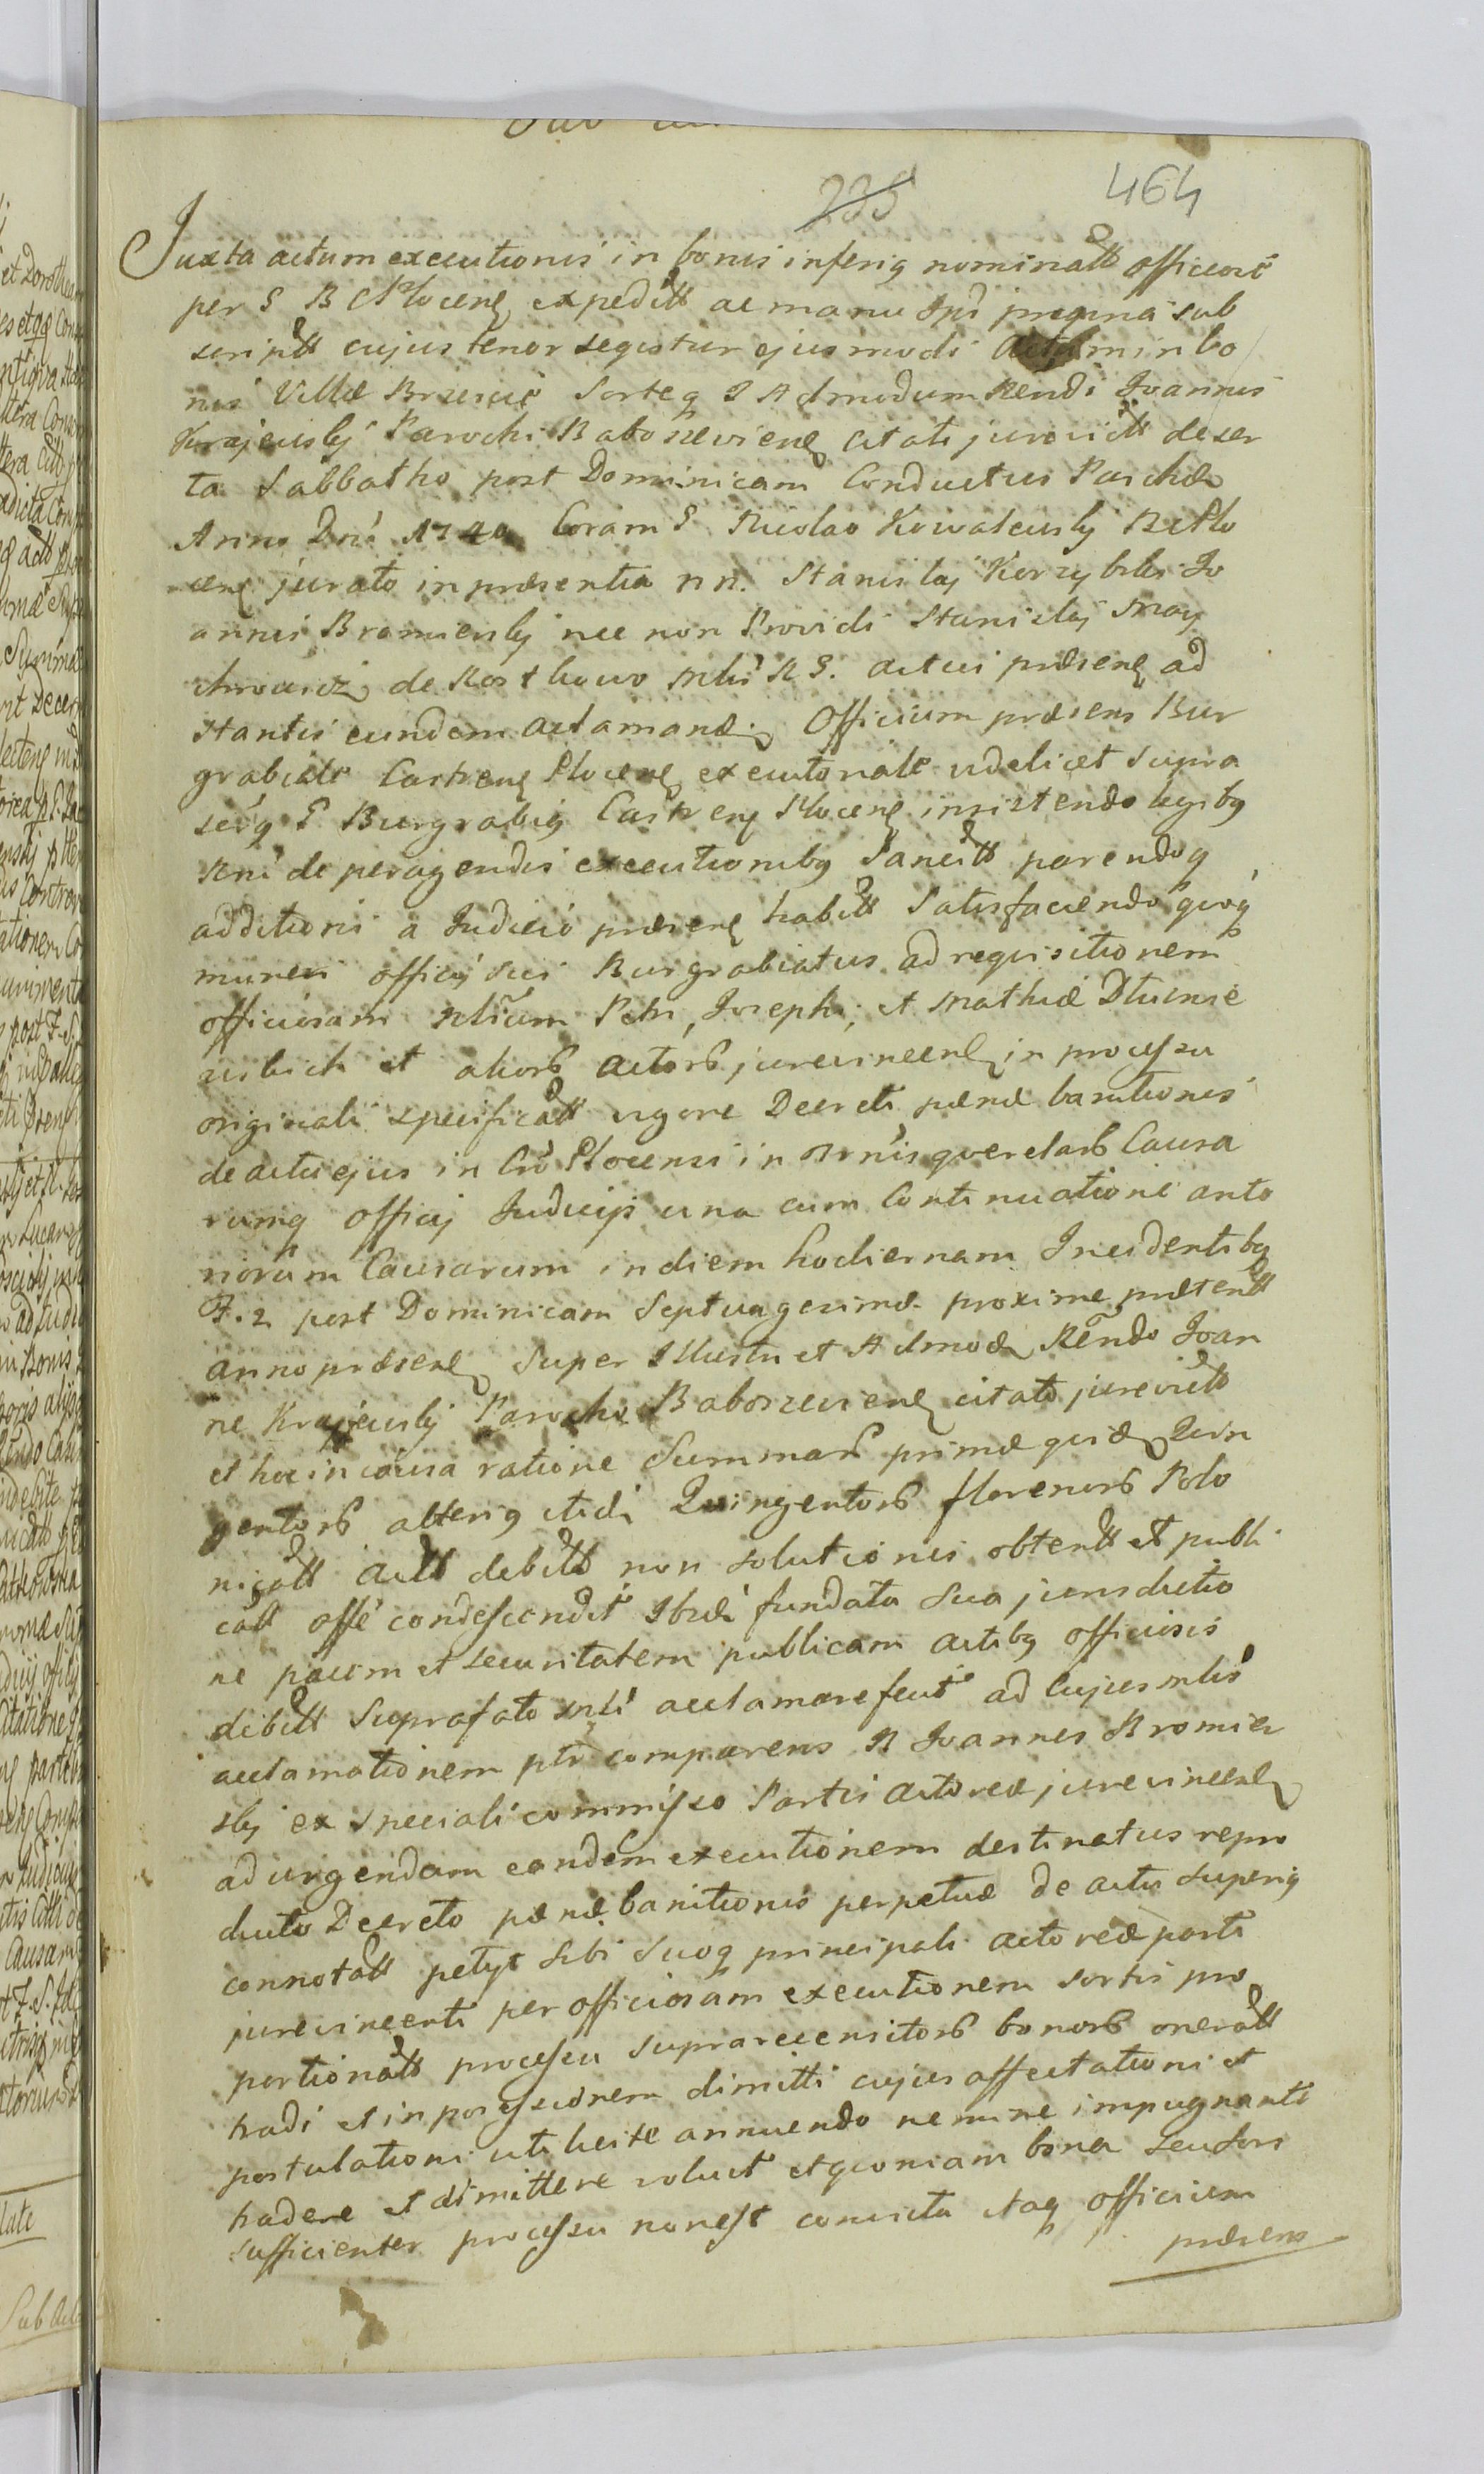 235 464
Juxta actum executionis in bonis inferiq nominatt officiose
per G B C Plocenę expeditt ac manu Ipī propria sub
scriptt cujus tenor sequitur ejusmodi Actum in bo
nis Villæ Brzescie Sorteq I Admodum Rendi Joannis
Krajewskj Parochi Baboszeviensę citati jurevictt deser
ta Sabbatho post Dominicam Conductus Paschæ
Anno Dnī 1740 Coram G Nicolao Kowalewskj B C Plo
cenę jurato in præsentia nn. Stanislaj Korzybski Jo
annis Bromierskj nec non Providi Stanislaj May
chrowicz de Rostkowo Mlis R G. actui præsenę ad
stantis eundem acclamanę Officium præsens Bur
grabiale Castrenę Plocenę executoriale videlicet supra
scrīq G Burgrabiq Castrenę Plocenę insistendo legibq
Rnī de peragendis executionibq Sancitt parendoq
additioni a Judicio præsenę habitt Satisfaciendo quoq
muneri officij sui Burgrabiatus ad requisitionem
officiosam Nlium Petri, Josephi, et Mathiæ Dluznie
wskich et aliorb actorb jurevincenę in processu
originali specificatt vigore Decreti pænæ banitionis
de actu ejus in Crō Plocensi in Rnīs querelarb Causa
rumq officij Judicijs una cum Continuatione anto
riorum Causarum in diem hodiernam Incidentibq
F. 2 post Dominicam Septuagesimæ proxime præteritt
anno præsenę Super Illustri et Admodę Rendo Joan
ne Krajewskj Parocho Baboszevienę citato jurevicto
et hoc in causa ratione Summarb primæ quidę Quin
gentorb alteriq itidi Quingentorb florenorb Polo
nicatt actt debitt non solutionis obtentt et publi
catt offē condescendit Ibidi fundata sua jurisdictio
ne pacem et securitatem publicam actibq officiosis
debitt Suprafato Mlī acclamare fecit ad cujus Mlis
acclamationem ptr comparens N Joannes Bromier
skj ex speciali commisso Partis actoreæ jurevincenę
ad urgendam eandem executionem destinatus repro
ducto Decreto pænæ banitionis perpetuæ de actu superiq
connotatt petyt sibi suoq principali actoreæ parti
jurevincenti per officiosam executionem sortis pro
portionatt processu suprarecensitorb bonorb oneratt
tradi et in possessionem dimitti cujus affectationi et
postulationi uti licite annuendo nemine impugnante
tradere et dimittere voluit et quoniam bona seu sors
sufficienter processu non est convicta itaq officium
præsens